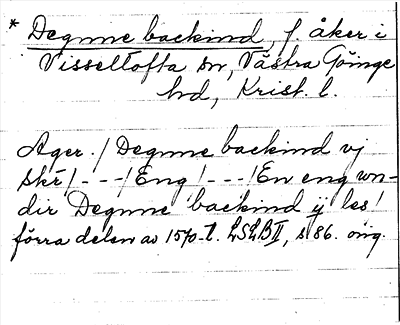 * Degnne backind, f. åker i
Visseltofta sn, Västra Göinge
hd, Krist. l.
Ager. / Degnne backind vj
skr / - - - / Eng / - - - / En eng wn-
dir Degnne backind ij les /
förra delen av 1570-t. LSLB II, s 86. orig.